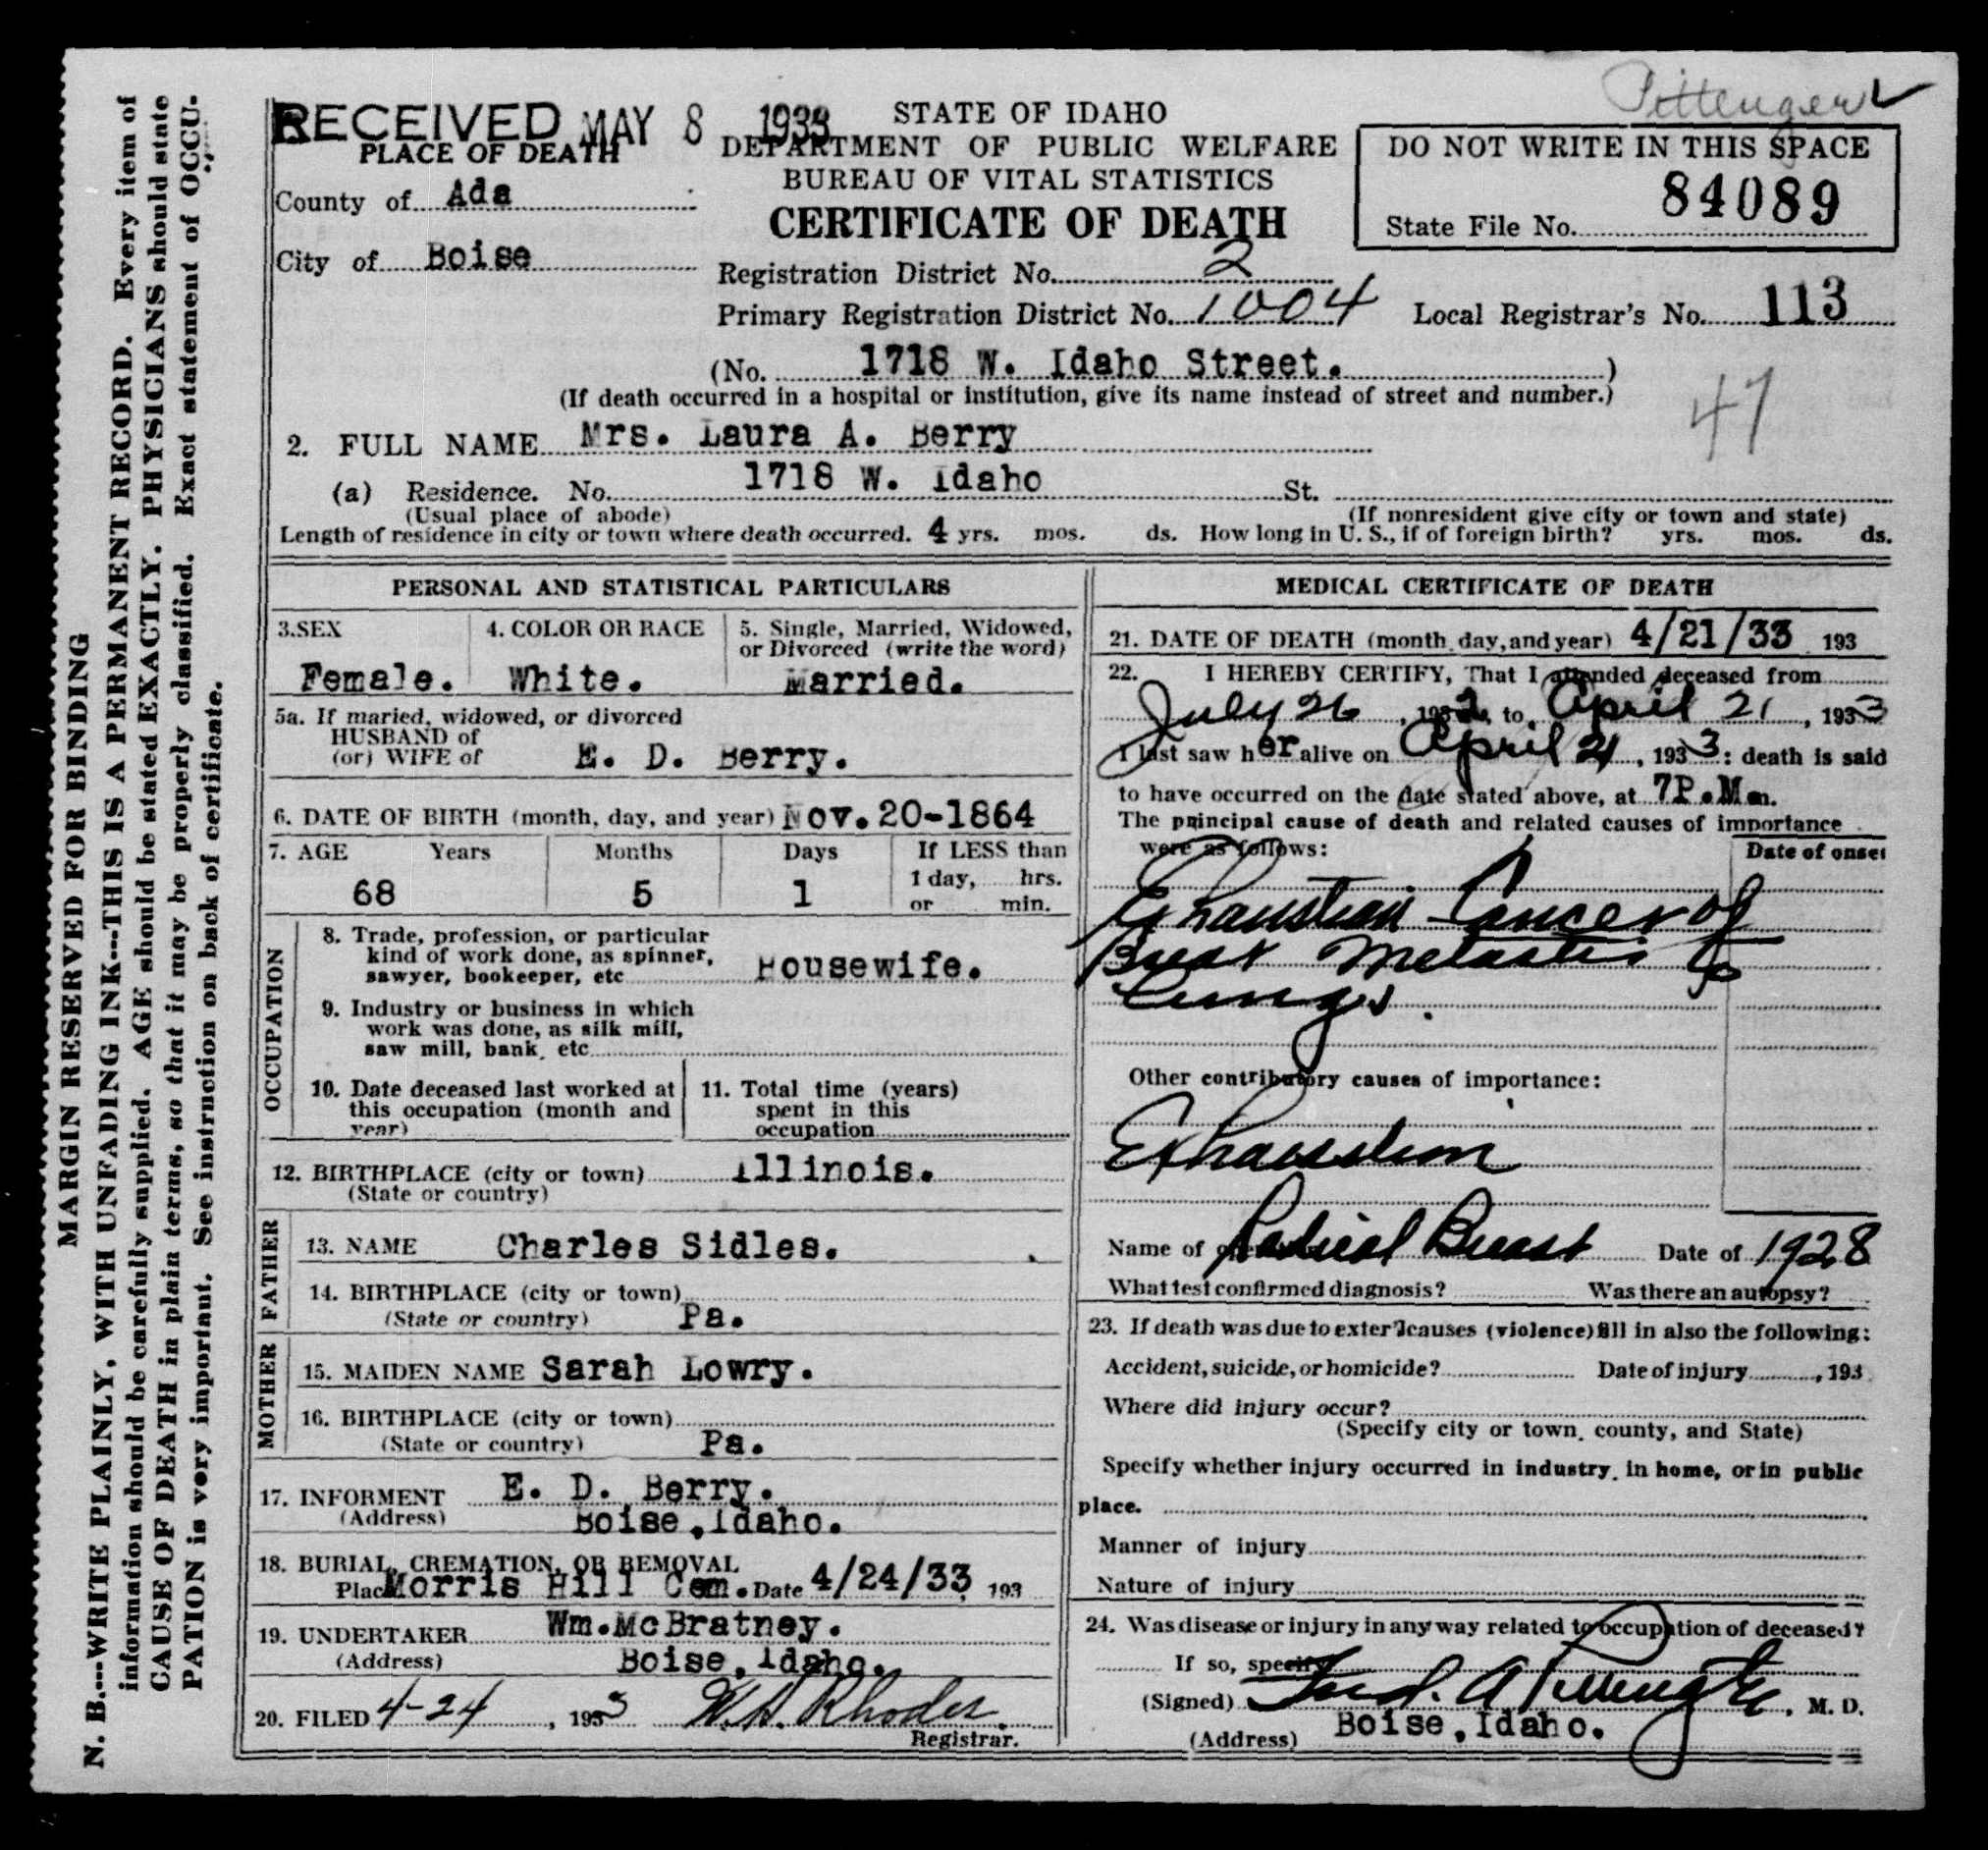 Pittenger ✓
RECEIVED MAY 8 1933
STATE OF IDAHO
DEPARTMENT OF PUBLIC WELFARE
BUREAU OF VITAL STATISTICS
CERTIFICATE OF DEATH
DO NOT WRITE IN THIS SPACE
84089
State File No.
PLACE OF DEATH
County of Ada
City of Boise
Registration District No. 2
Primary Registration District No. 1004 Local Registrar's No. 113
(No. 1718 W. Idaho Street. )
(If death occurred in a hospital or institution, give its name instead of street and number.)
47
2. FULL NAME Mrs. Laura A. Berry
(a) Residence. No. 1718 W. Idaho St.
(Usual place of abode) (If nonresident give city or town and state)
Length of residence in city or town where death occurred. 4 yrs. mos. ds. How long in U. S., if of foreign birth? yrs. mos. ds.
PERSONAL AND STATISTICAL PARTICULARS
3.SEX 4. COLOR OR RACE 5. Single, Married, Widowed,
or Divorced (write the word)
Female. White. Married.
5a. If maried, widowed, or divorced
HUSBAND of
(or) WIFE of E. D. Berry.
6. DATE OF BIRTH (month, day, and year) Nov. 20-1864
7. AGE Years Months Days If LESS than
1 day, hrs.
68 5 1 or min.
OCCUPATION
8. Trade, profession, or particular
kind of work done, as spinner,
sawyer, bookeeper, etc Housewife.
9. Industry or business in which
work was done, as silk mill,
saw mill, bank, etc
10. Date deceased last worked at
this occupation (month and
year)
11. Total time (years)
spent in this
occupation
12. BIRTHPLACE (city or town) Illinois.
(State or country)
FATHER
13. NAME Charles Sidles.
14. BIRTHPLACE (city or town)
(State or country) Pa.
MOTHER
15. MAIDEN NAME Sarah Lowry.
16. BIRTHPLACE (city or town)
(State or country) Pa.
17. INFORMENT E. D. Berry.
(Address) Boise, Idaho.
18. BURIAL, CREMATION, OR REMOVAL
Place Morris Hill Cem. Date 4/24/33, 193
19. UNDERTAKER Wm. McBratney.
(Address) Boise, Idaho.
20. FILED 4-24, 1933 W.H. Rhodes.
Registrar.
MEDICAL CERTIFICATE OF DEATH
21. DATE OF DEATH (month, day, and year) 4/21/33 193
22. I HEREBY CERTIFY, That I attended deceased from
July 26, 1932, to April 21, 1933
I last saw her alive on April 21, 1933: death is said
to have occurred on the date stated above, at 7P.M m.
The principal cause of death and related causes of importance
were as follows: Date of onset
Exhaustion Cancer of
Breast Metastis to
Lungs.
Other contributory causes of importance:
Exhaustion
Name of operation Radical Breast Date of 1928
What test confirmed diagnosis? Was there an autopsy?
23. If death was due to exter'l causes (violence) fill in also the following:
Accident, suicide, or homicide? Date of injury , 193
Where did injury occur?
(Specify city or town, county, and State)
Specify whether injury occurred in industry, in home, or in public
place.
Manner of injury
Nature of injury
24. Was disease or injury in any way related to occupation of deceased?
If so, specify
(Signed) Fred. A Pittenger, M. D.
(Address) Boise, Idaho.
MARGIN RESERVED FOR BINDING
N. B.---WRITE PLAINLY, WITH UNFADING INK---THIS IS A PERMANENT RECORD. Every item of
information should be carefully supplied. AGE should be stated EXACTLY. PHYSICIANS should state
CAUSE OF DEATH in plain terms, so that it may be properly classified. Exact statement of OCCU-
PATION is very important. See instruction on back of certificate.